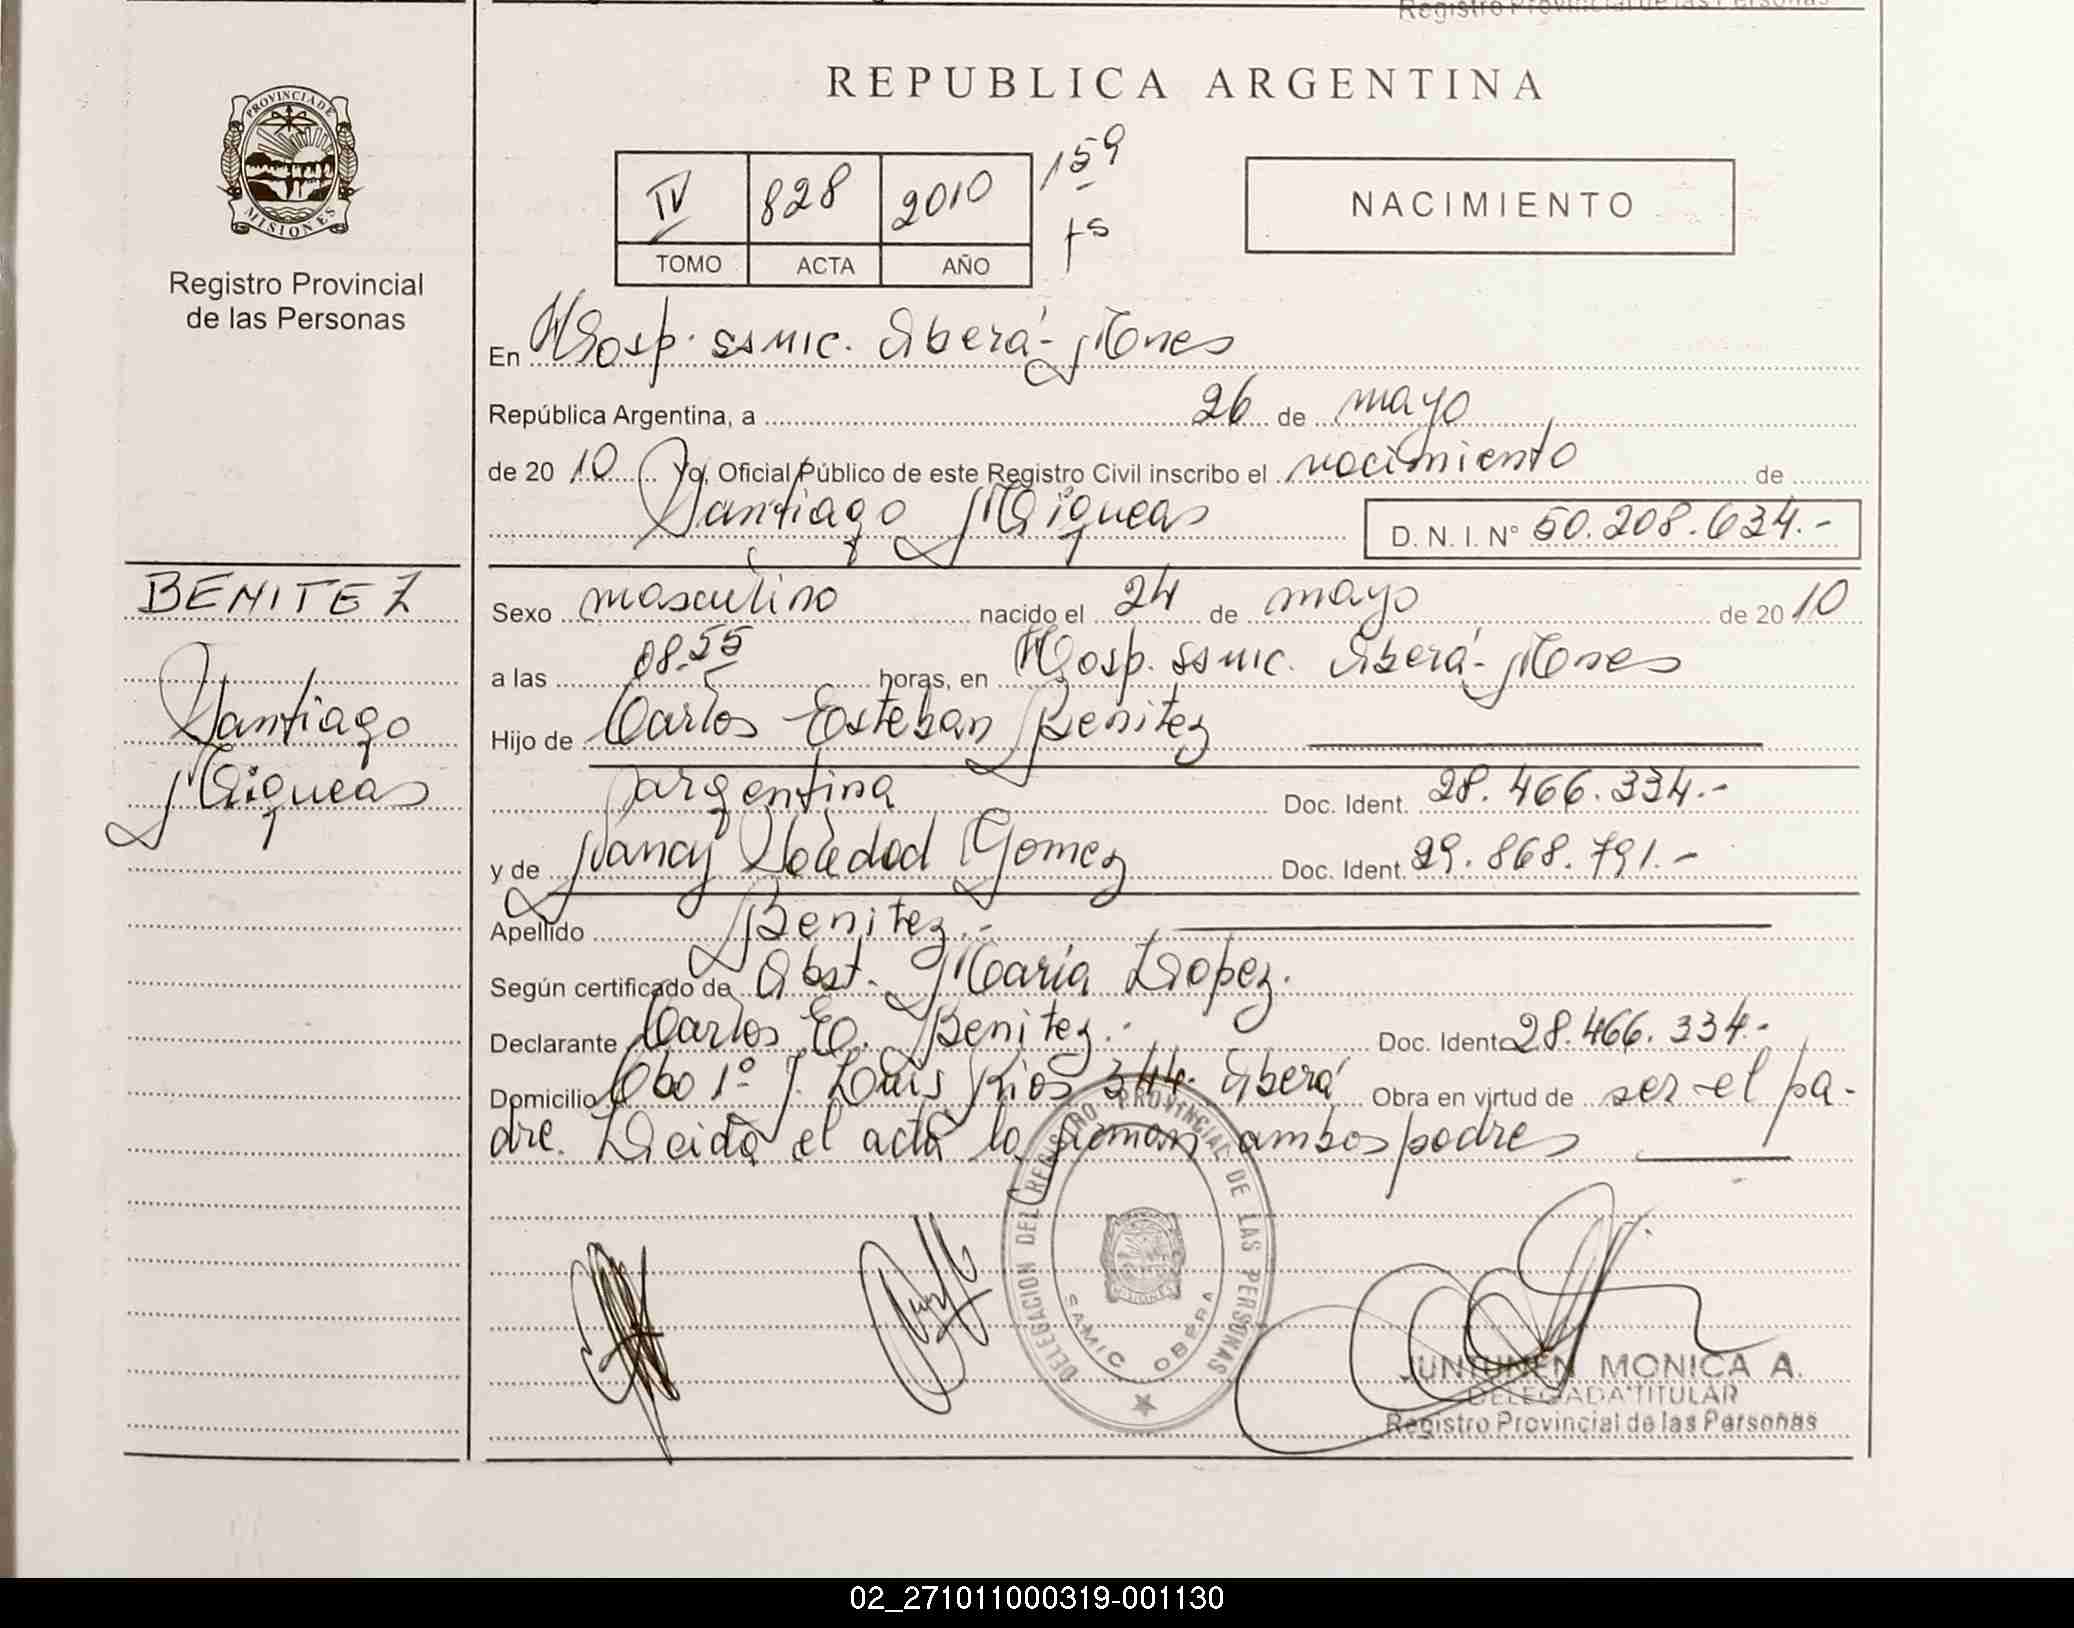 Registro Provincial de las Personas
REPUBLICA ARGENTINA
PROVINCIA DE
MISIONES
Registro Provincial
de las Personas
IV 828 2010 159
fs
TOMO ACTA AÑO
NACIMIENTO
En Hosp. SAMIC. Oberá - Mnes
República Argentina, a 26 de mayo
de 20 10 Yo, Oficial Público de este Registro Civil inscribo el nacimiento de
Santiago Miqueas D. N. I. N° 50.208.634.-
BENITEZ
Santiago
Miqueas
Sexo masculino nacido el 24 de mayo de 20 10
a las 08.55 horas, en Hosp. SAMIC. Oberá - Mnes
Hijo de Carlos Esteban Benitez
argentina Doc. Ident. 28.466.334.-
y de Nancy Soledad Gomez Doc. Ident. 29.868.791.-
Apellido Benitez.-
Según certificado de Obst. María Lopez.
Declarante Carlos E. Benitez. Doc. Ident. 28.466.334.-
Domicilio 1° J. Luis Rios 344. Oberá Obra en virtud de ser el pa-
dre. Leida el acta la firman ambos padres
DELEGACION DEL REGISTRO PROVINCIAL DE LAS PERSONAS
SAMIC OBERA
JUNTUNEN MONICA A.
DELEGADA TITULAR
Registro Provincial de las Personas
02_271011000319-001130